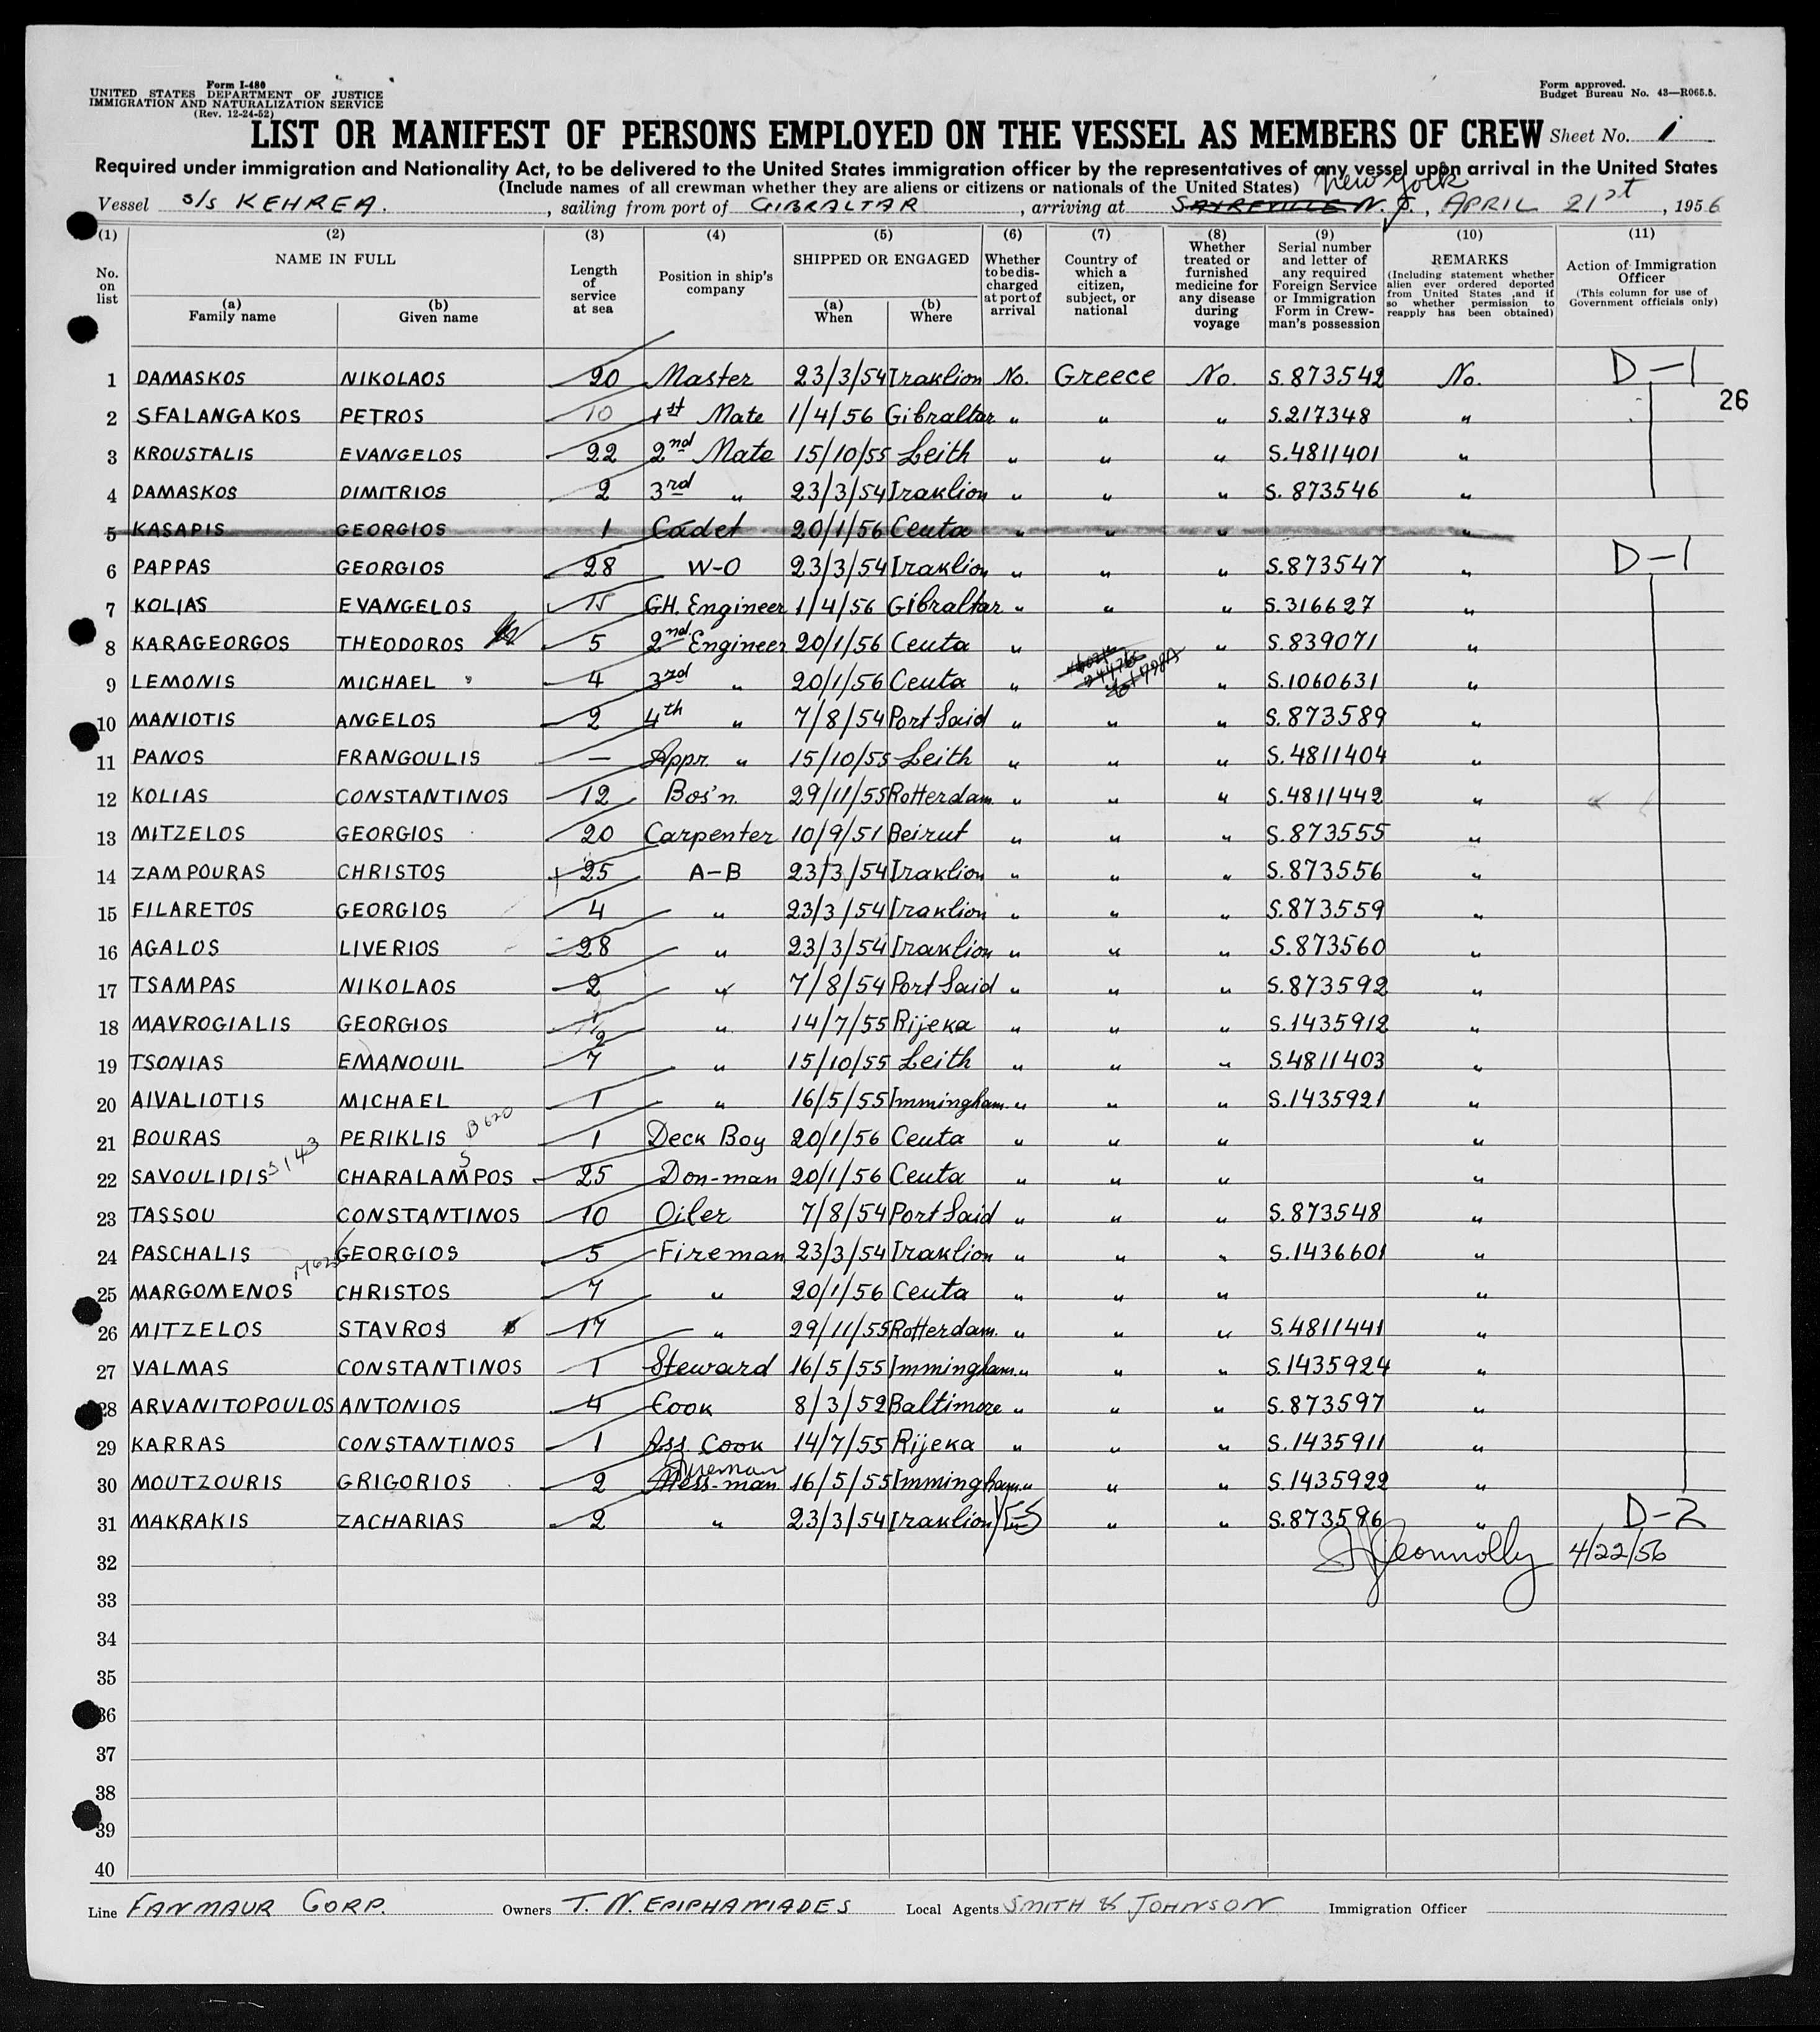 Form I-480
UNITED STATES DEPARTMENT OF JUSTICE
IMMIGRATION AND NATURALIZATION SERVICE
(Rev. 12-24-52)
Form approved.
Budget Bureau No. 43—R065.5.
LIST OR MANIFEST OF PERSONS EMPLOYED ON THE VESSEL AS MEMBERS OF CREW Sheet No. 1
Required under immigration and Nationality Act, to be delivered to the United States immigration officer by the representatives of any vessel upon arrival in the United States
(Include names of all crewman whether they are aliens or citizens or nationals of the United States) New York
Vessel S/S KEHREA. , sailing from port of GIBRALTAR , arriving at SAYREVILLE N.J. , APRIL 21st , 1956
(1) (2) (3) (4) (5) (6) (7) (8) (9) (10) (11)
No. on list
NAME IN FULL
(a) Family name
(b) Given name
Length of service at sea
Position in ship's company
SHIPPED OR ENGAGED
(a) When
(b) Where
Whether to be discharged at port of arrival
Country of which a citizen, subject, or national
Whether treated or furnished medicine for any disease during voyage
Serial number and letter of any required Foreign Service or Immigration Form in Crewman's possession
REMARKS
(Including statement whether alien ever ordered deported from United States ,and if so whether permission to reapply has been obtained)
Action of Immigration Officer
(This column for use of Government officials only)
1 DAMASKOS NIKOLAOS 20 Master 23/3/54 Iraklion No. Greece No. S.873542 No. D-1
26
2 SFALANGAKOS PETROS 10 1st Mate 1/4/56 Gibraltar " " " S.217348 "
3 KROUSTALIS EVANGELOS 22 2nd Mate 15/10/55 Leith " " " S.4811401 "
4 DAMASKOS DIMITRIOS 2 3rd " 23/3/54 Iraklion " " " S.873546 "
5 KASAPIS GEORGIOS 1 Cadet 20/1/56 Ceuta " " " "
6 PAPPAS GEORGIOS 28 W-O 23/3/54 Iraklion " " " S.873547 " D-1
7 KOLIAS EVANGELOS 15 CH. Engineer 1/4/56 Gibraltar " " " S.316627 "
8 KARAGEORGOS THEODOROS 5 2nd Engineer 20/1/56 Ceuta " " S.839071 "
9 LEMONIS MICHAEL 4 3rd " 20/1/56 Ceuta " " S.1060631 "
10 MANIOTIS ANGELOS 2 4th " 7/8/54 Port Said " " " S.873589 "
11 PANOS FRANGOULIS — Appr. " 15/10/55 Leith " " " S.4811404 "
12 KOLIAS CONSTANTINOS 12 Bos'n. 29/11/55 Rotterdam " " " S.4811442 "
13 MITZELOS GEORGIOS 20 Carpenter 10/9/51 Beirut " " " S.873555 "
14 ZAMPOURAS CHRISTOS 25 A-B 23/3/54 Iraklion " " " S.873556 "
15 FILARETOS GEORGIOS 4 " 23/3/54 Iraklion " " " S.873559 "
16 AGALOS LIVERIOS 28 " 23/3/54 Iraklion " " " S.873560 "
17 TSAMPAS NIKOLAOS 2 " 7/8/54 Port Said " " " S.873592 "
18 MAVROGIALIS GEORGIOS 1/2 " 14/7/55 Rijeka " " " S.1435912 "
19 TSONIAS EMANOUIL 7 " 15/10/55 Leith " " " S.4811403 "
20 AIVALIOTIS MICHAEL 1 " 16/5/55 Immingham " " " S.1435921 "
21 BOURAS PERIKLIS B620 1 Deck Boy 20/1/56 Ceuta " " " "
22 SAVOULIDIS S143 CHARALAMPOS S 25 Don-man 20/1/56 Ceuta " " " "
23 TASSOU CONSTANTINOS 10 Oiler 7/8/54 Port Said " " " S.873548 "
24 PASCHALIS GEORGIOS 5 Fireman 23/3/54 Iraklion " " " S.1436601 "
25 MARGOMENOS CHRISTOS 7 " 20/1/56 Ceuta " " " "
26 MITZELOS STAVROS 17 " 29/11/55 Rotterdam " " " S.4811441 "
27 VALMAS CONSTANTINOS 1 Steward 16/5/55 Immingham " " " S.1435924 "
28 ARVANITOPOULOS ANTONIOS 4 Cook 8/3/52 Baltimore " " " S.873597 "
29 KARRAS CONSTANTINOS 1 Ass. Cook 14/7/55 Rijeka " " " S.1435911 "
30 MOUTZOURIS GRIGORIOS 2 Fireman Mess-man 16/5/55 Immingham " " " S.1435922 "
31 MAKRAKIS ZACHARIAS 2 " 23/3/54 Iraklion YES " " S.873596 " D-2
32 Connolly 4/22/56
33
34
35
36
37
38
39
40
Line FANMAUR CORP. Owners T. N. EPIPHANIADES Local Agents SMITH & JOHNSON Immigration Officer